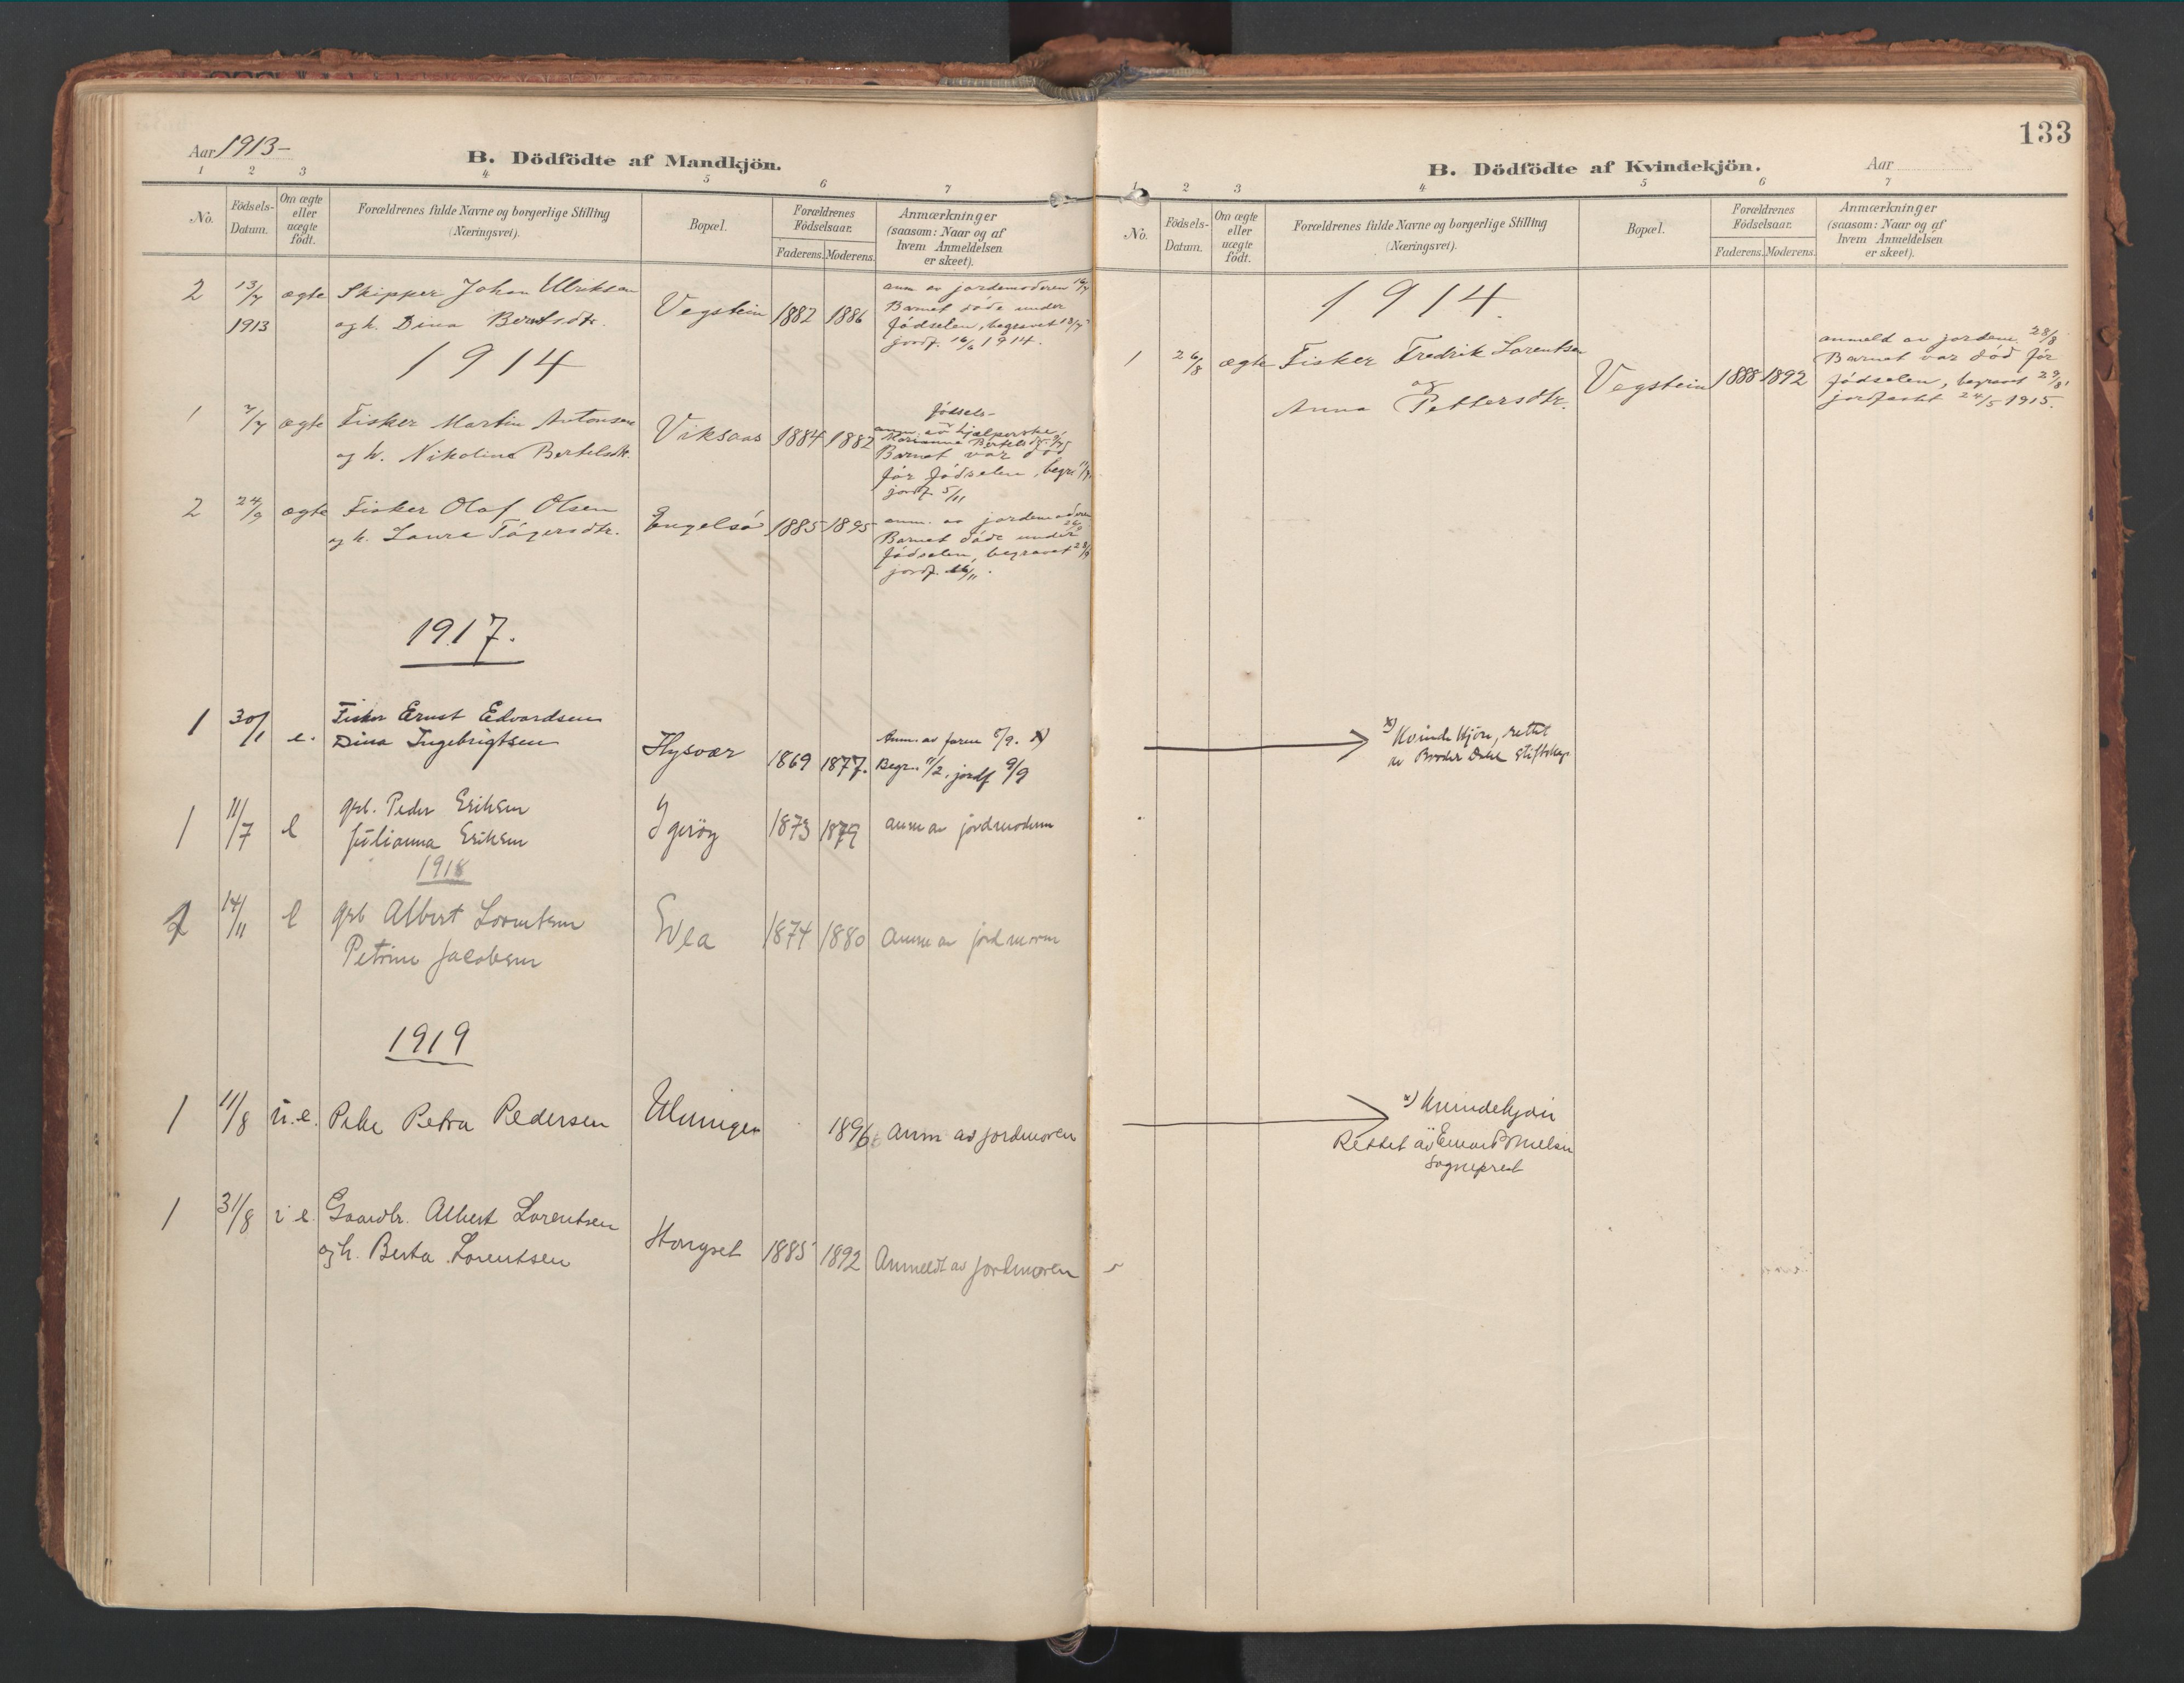 Aar 1913-
B. Dödfödte af Mandkjön.
1 2 3 4 5 6 7
No.
Födsels-Datum.
Om ægte eller uægte födt.
Forældrenes fulde Navne og borgerlige Stilling
(Næringsvei).
Bopæl.
Forældrenes Födselsaar.
Faderens. Moderens.
Anmærkninger
(saasom: Naar og af
hvem Anmeldelsen
er skeet).
2 13/7 1913 ægte Skipper Johan Ulriksen
og h. Dina Berntsdtr.
Vegstein 1882 1886
anm av jordemoderen
Barnet döde under
födselen, begravet 18/7
jordf. 16/6 1914.
1914
1 7/7 ægte Fisker Martin Antonsen
og h. Nikoline Bertelsdtr.
Viksaas 1884 1882
födsels-
anm. av hjælperske
Marianna Bertelsdtr.
Barnet var död
för födselen, begr.
jordf. 5/11
2 24/9 ægte Fisker Olaf Olsen
og h. Laura Tögersdtr.
Engelsö 1885 1895
anm. av jordemoderen
Barnet döde under
födselen, begravet 28/9
jordf.
1917.
1 30/1 e. Fisker Ernst Edvardsen
Dina Ingebrigtsen
Hysvær 1869 1877.
Anm. av faren 5/9. x)
Begr. 11/2, jordf 9/9
1 11/7 e grb. Peder Eriksen
Julianna Eriksen
Ygerøy 1873 1879
anm av jordmoderen
1918
14/11 e grb Albert Lorentsen
Petrine Jacobsen
Evea 1874 1880
Anm av jordmoren
1919
1 11/8 u.e. Pike Petra Pedersen
1896
Anm av jordmoren
1 31/8 e. Gaardbr. Albert Lorentsen
og h. Berta Lorentsen
Horgset 1885 1892
Anmeldt av jordmoren
133
B. Dödfödte af Kvindekjön.
Aar
1 2 3 4 5 6 7
No.
Födsels-Datum.
Om ægte eller uægte födt.
Forældrenes fulde Navne og borgerlige Stilling
(Næringsvei).
Bopæl.
Forældrenes Födselsaar.
Faderens. Moderens.
Anmærkninger
(saasom: Naar og af
hvem Anmeldelsen
er skeet).
1914.
1 26/8 ægte Fisker Fredrik Lorentsen
og
Anna Pettersdtr.
Vegstein 1888 1892
anmeld av jordem. 28/8
Barnet var död för
födselen, begravet 29/8
jordfæstet 24/5 1915.
x) Kvindekjön, rettet
av Broder Dahl Stiftskap.
x) Kvindekjön
Rettet av Einar Nielsen
Sogneprest